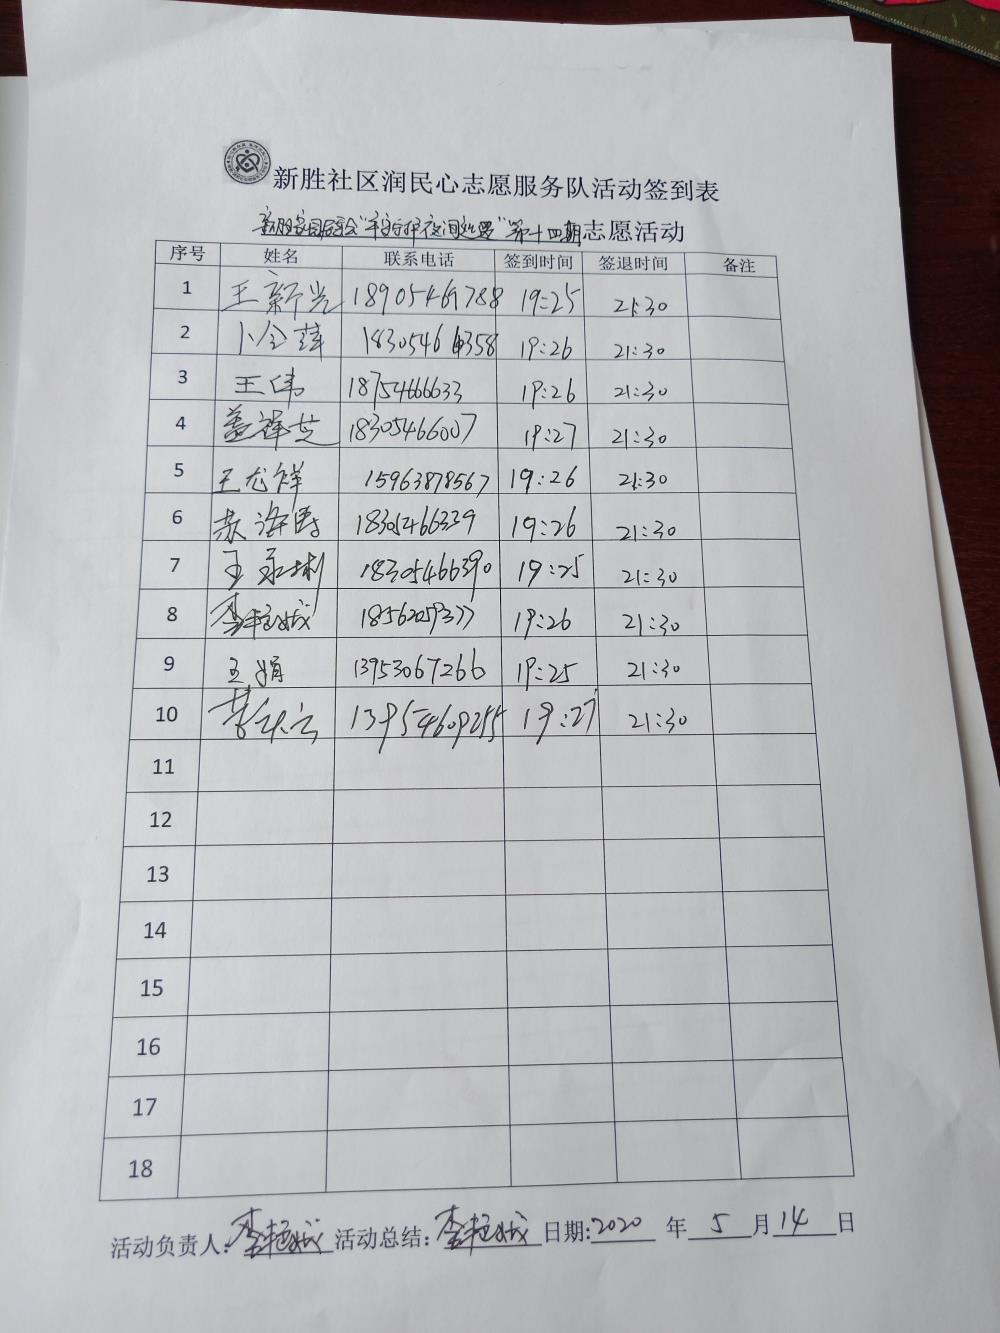 新胜社区润民心志愿服务队活动签到表
第十四期志愿活动
序号 姓名 联系电话 签到时间 签退时间 备注
1 王新光 18905469788 19:25 21:30
2 卜令萍 1830546 19:26 21:30
3 王伟 18754666633 19:26 21:30
4 18305466007 19:27 21:30
5 王尤祥 15963878567 19:26 21:30
6 苏海 18305466339 19:26 21:30
7 王永利 18305466390 19:25 21:30
8 李艳娥 18562059377 19:26 21:30
9 王娟 13953067266 19:25 21:30
10 13954609255 19:27 21:30
11
12
13
14
15
16
17
18
活动负责人:李艳娥 活动总结:李艳娥 日期:2020 年 5 月 14 日